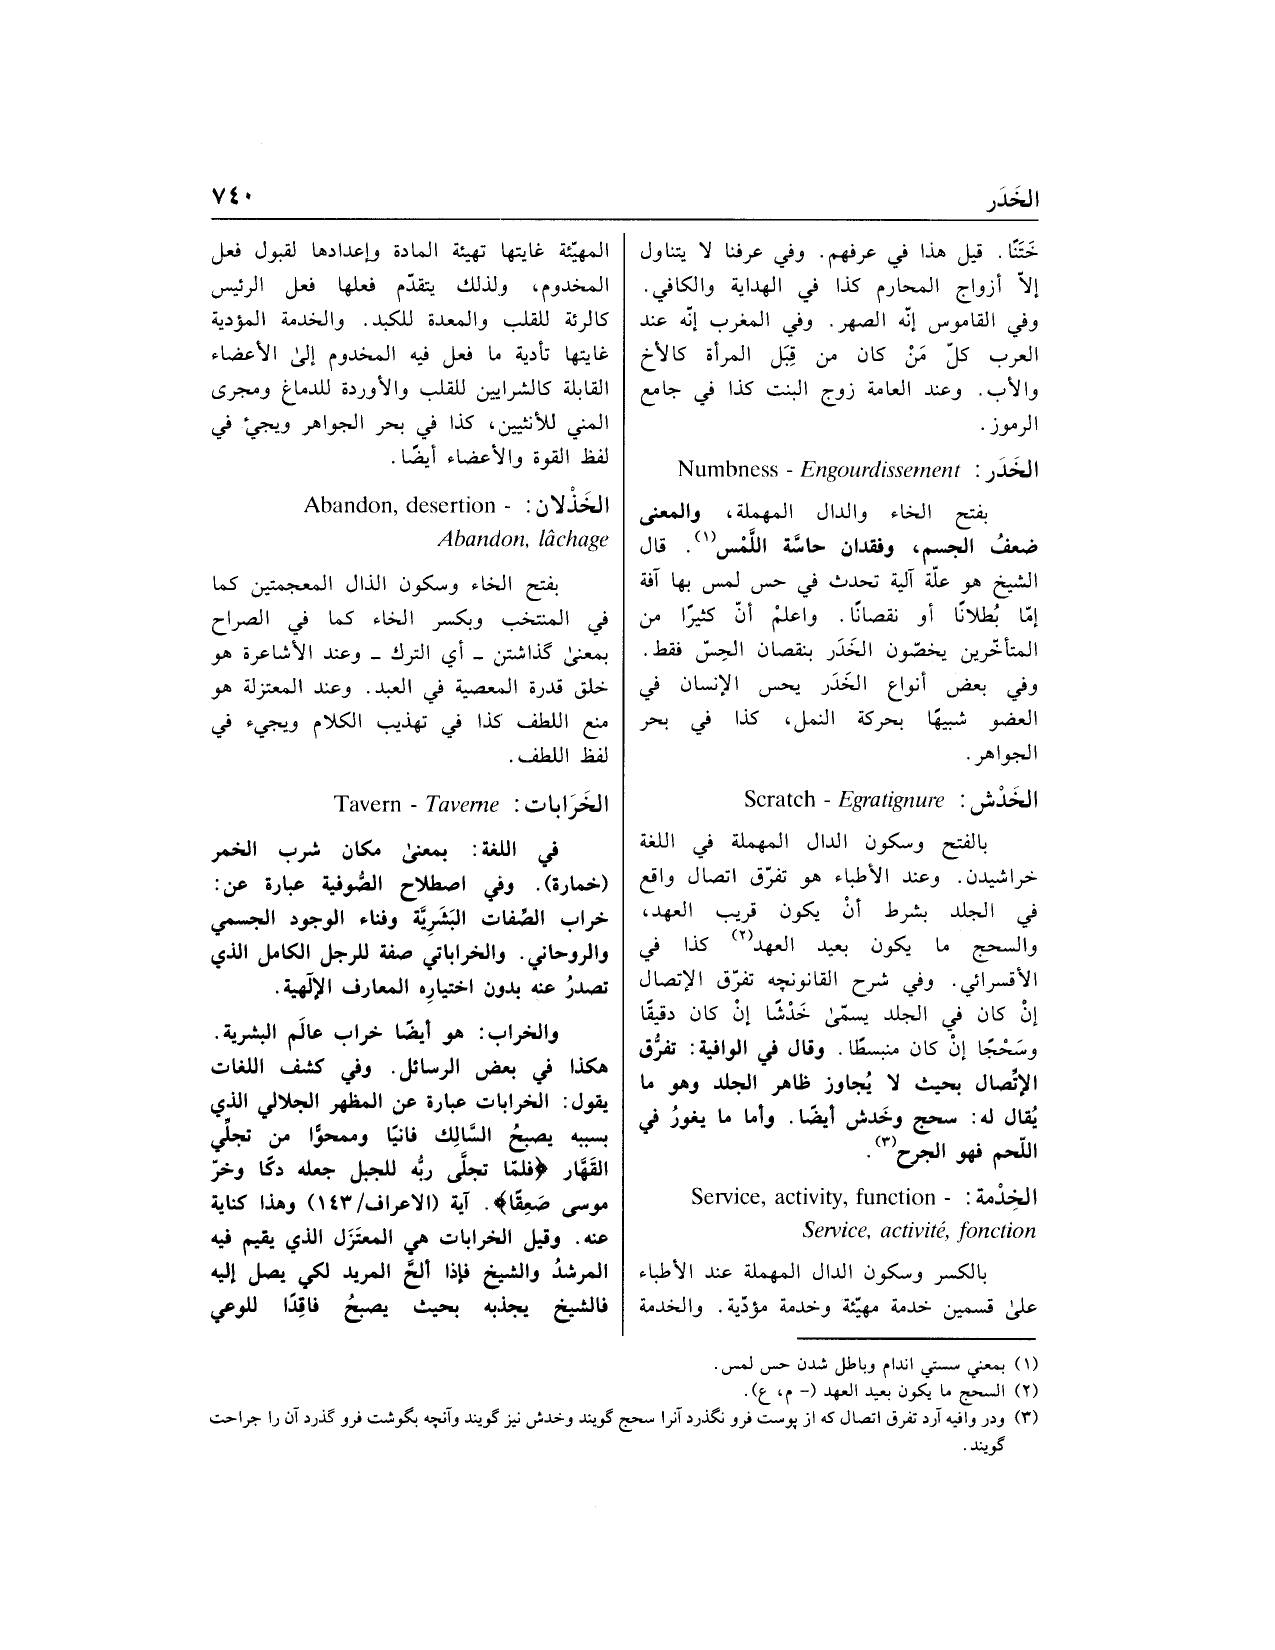 الخَدَر
٧٤٠
خَتَنًا. قيل هذا في عرفهم. وفي عرفنا لا يتناول
إلاّ أزواج المحارم كذا في الهداية والكافي.
وفي القاموس إنّه الصهر. وفي المغرب إنّه عند
العرب كلّ مَنْ كان من قِبَل المرأة كالأخ
والأب. وعند العامة زوج البنت كذا في جامع
الرموز.
الخَدَر: Numbness - Engourdissement
بفتح الخاء والدال المهملة، والمعنى
ضعفُ الجسم، وفقدان حاسَّة اللَّمْس(١). قال
الشيخ هو علّة آلية تحدث في حس لمس بها آفة
إمّا بُطلانًا أو نقصانًا. واعلمْ أنّ كثيرًا من
المتأخّرين يخصّون الخَدَر بنقصان الحِسّ فقط.
وفي بعض أنواع الخَدَر يحس الإنسان في
العضو شبيهًا بحركة النمل، كذا في بحر
الجواهر.
الخَدْش: Scratch - Egratignure
بالفتح وسكون الدال المهملة في اللغة
خراشيدن. وعند الأطباء هو تفرّق اتصال واقع
في الجلد بشرط أنْ يكون قريب العهد،
والسحج ما يكون بعيد العهد(٢) كذا في
الأقسرائي. وفي شرح القانونچه تفرّق الإتصال
إنْ كان في الجلد يسمّىٰ خَدْشًا إنْ كان دقيقًا
وسَحْجًا إنْ كان منبسطًا. وقال في الوافية: تفرُّق
الإتِّصال بحيث لا يُجاوز ظاهر الجلد وهو ما
يُقال له: سحج وخَدش أيضًا. وأما ما يغورُ في
اللّحم فهو الجرح(٣).
الخِدْمة: Service, activity, function -
Service, activité, fonction
بالكسر وسكون الدال المهملة عند الأطباء
علىٰ قسمين خدمة مهيّئة وخدمة مؤدّية. والخدمة
المهيّئة غايتها تهيئة المادة وإعدادها لقبول فعل
المخدوم، ولذلك يتقدّم فعلها فعل الرئيس
كالرئة للقلب والمعدة للكبد. والخدمة المؤدية
غايتها تأدية ما فعل فيه المخدوم إلىٰ الأعضاء
القابلة كالشرايين للقلب والأوردة للدماغ ومجرى
المني للأنثيين، كذا في بحر الجواهر ويجئ في
لفظ القوة والأعضاء أيضًا.
الخَذْلان: Abandon, desertion -
Abandon, lâchage
بفتح الخاء وسكون الذال المعجمتين كما
في المنتخب وبكسر الخاء كما في الصراح
بمعنىٰ گذاشتن ـ أي الترك ـ وعند الأشاعرة هو
خلق قدرة المعصية في العبد. وعند المعتزلة هو
منع اللطف كذا في تهذيب الكلام ويجيء في
لفظ اللطف.
الخَرَابات: Tavern - Taverne
في اللغة: بمعنىٰ مكان شرب الخمر
(خمارة). وفي اصطلاح الصُّوفية عبارة عن:
خراب الصِّفات البَشَرِيَّة وفناء الوجود الجسمي
والروحاني. والخراباتي صفة للرجل الكامل الذي
تصدرُ عنه بدون اختياره المعارف الإلٓهية.
والخراب: هو أيضًا خراب عالَم البشرية.
هكذا في بعض الرسائل. وفي كشف اللغات
يقول: الخرابات عبارة عن المظهر الجلالي الذي
بسببه يصبحُ السَّالِك فانيًا وممحوًّا من تجلِّي
القَهَّار ﴿فلمّا تجلَّى ربُّه للجبل جعله دكًا وخرّ
موسى صَعِقًا﴾. آية (الاعراف/١٤٣) وهذا كناية
عنه. وقيل الخرابات هي المعتَزَل الذي يقيم فيه
المرشدُ والشيخ فإذا ألحَّ المريد لكي يصل إليه
فالشيخ يجذبه بحيث يصبحُ فاقِدًا للوعي
(١) بمعني سستي اندام وباطل شدن حس لمس.
(٢) السحج ما يكون بعيد العهد (- م، ع).
(٣) ودر وافيه آرد تفرق اتصال كه از پوست فرو نگذرد آنرا سحج گويند وخدش نيز گويند وآنچه بگوشت فرو گذرد آن را جراحت
گويند.